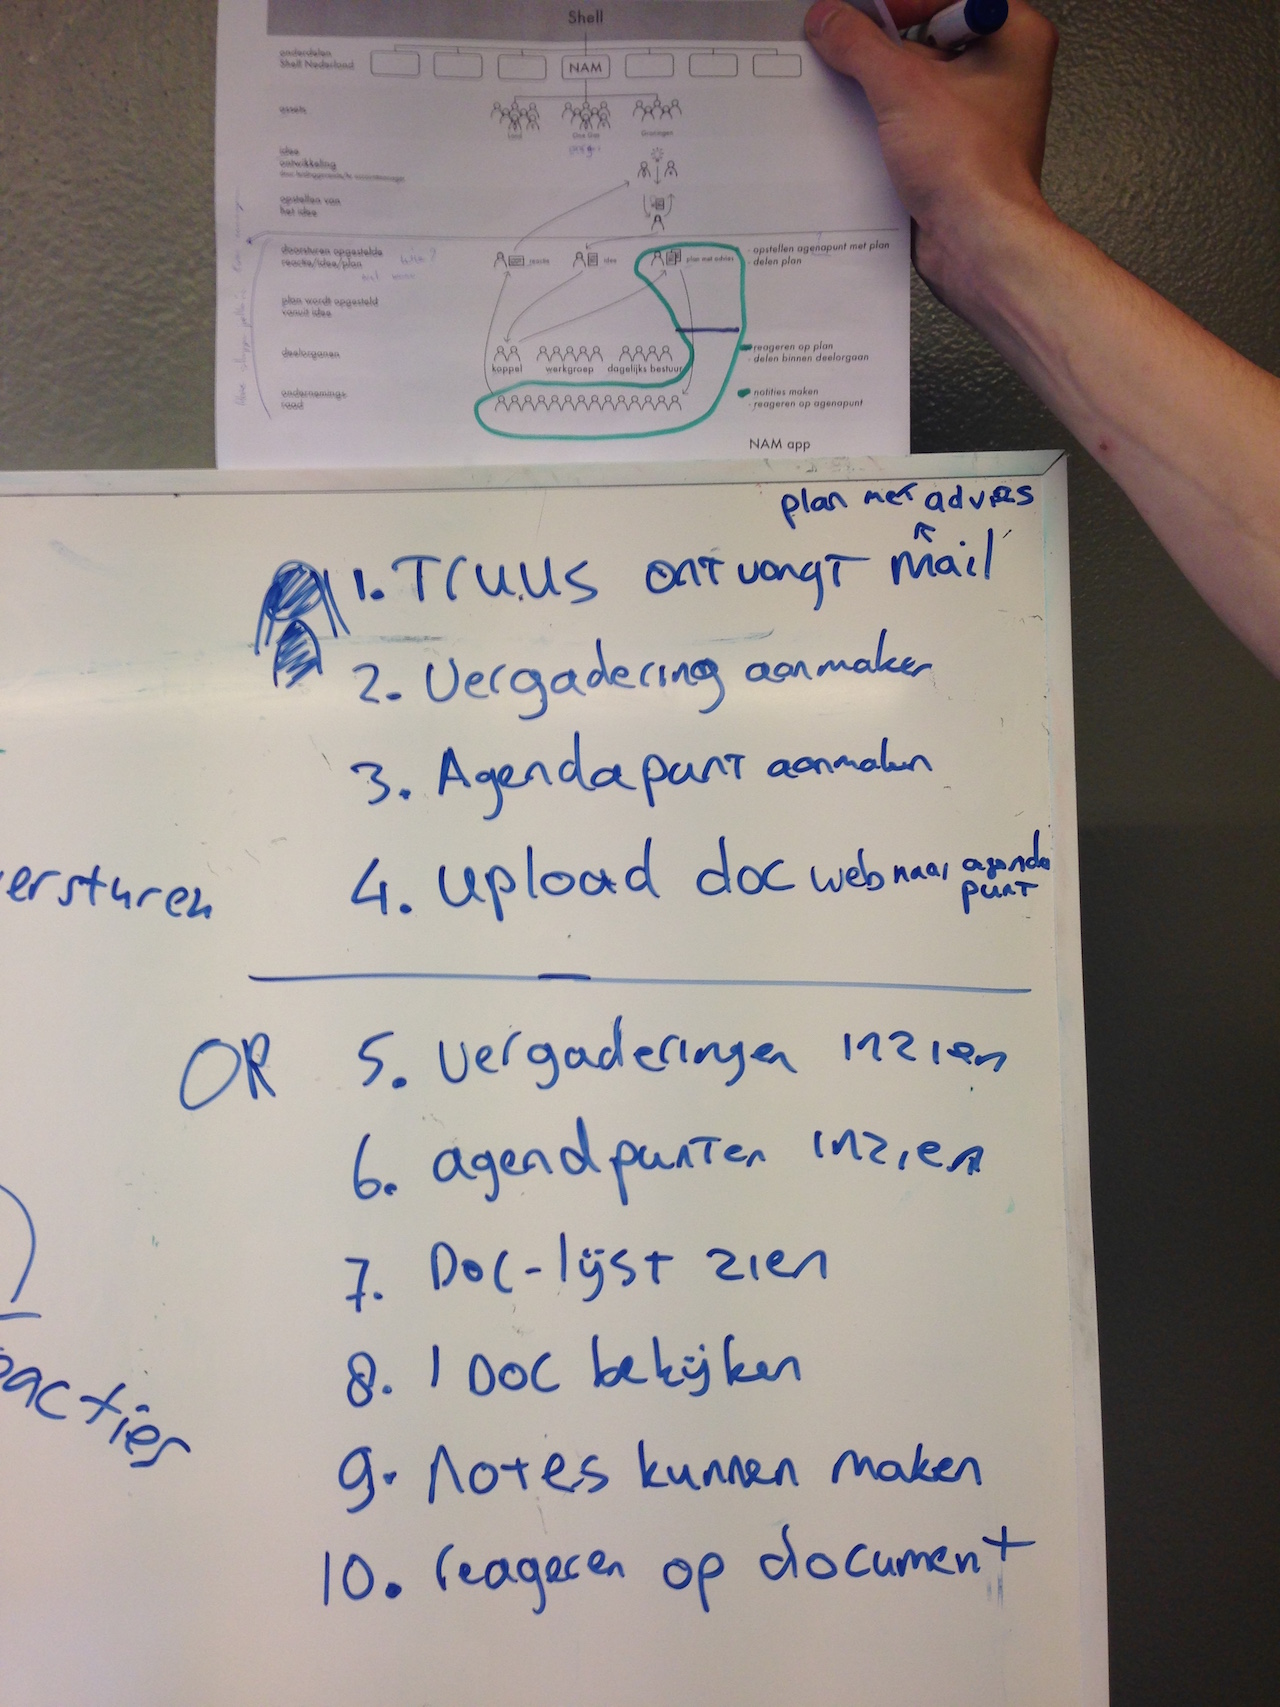 Shell
onderdelen
Shell Nederland
NAM
assets
Land
One Gas
Groningen
idee
ontwikkeling
opstellen van
het idee
doorsturen opgestelde
reactie/idee/plan
reactie
idee
plan met advies
- opstellen agenapunt met plan
- delen plan
plan wordt opgesteld
vanuit idee
deelorganen
koppel
werkgroep
dagelijks bestuur
- reageren op plan
- delen binnen deelorgaan
ondernemings
raad
- notities maken
- reageren op agenapunt
NAM app
plan met advies
1. Truus ontvangt mail
2. Vergadering aanmaken
3. Agendapunt aanmaken
4. upload doc web naar agenda
punt
ersturen
OR
5. vergaderingen inzien
6. agendpunten inzien
7. Doc-lijst zien
8. 1 Doc bekijken
acties
9. notes kunnen maken
10. reageren op document